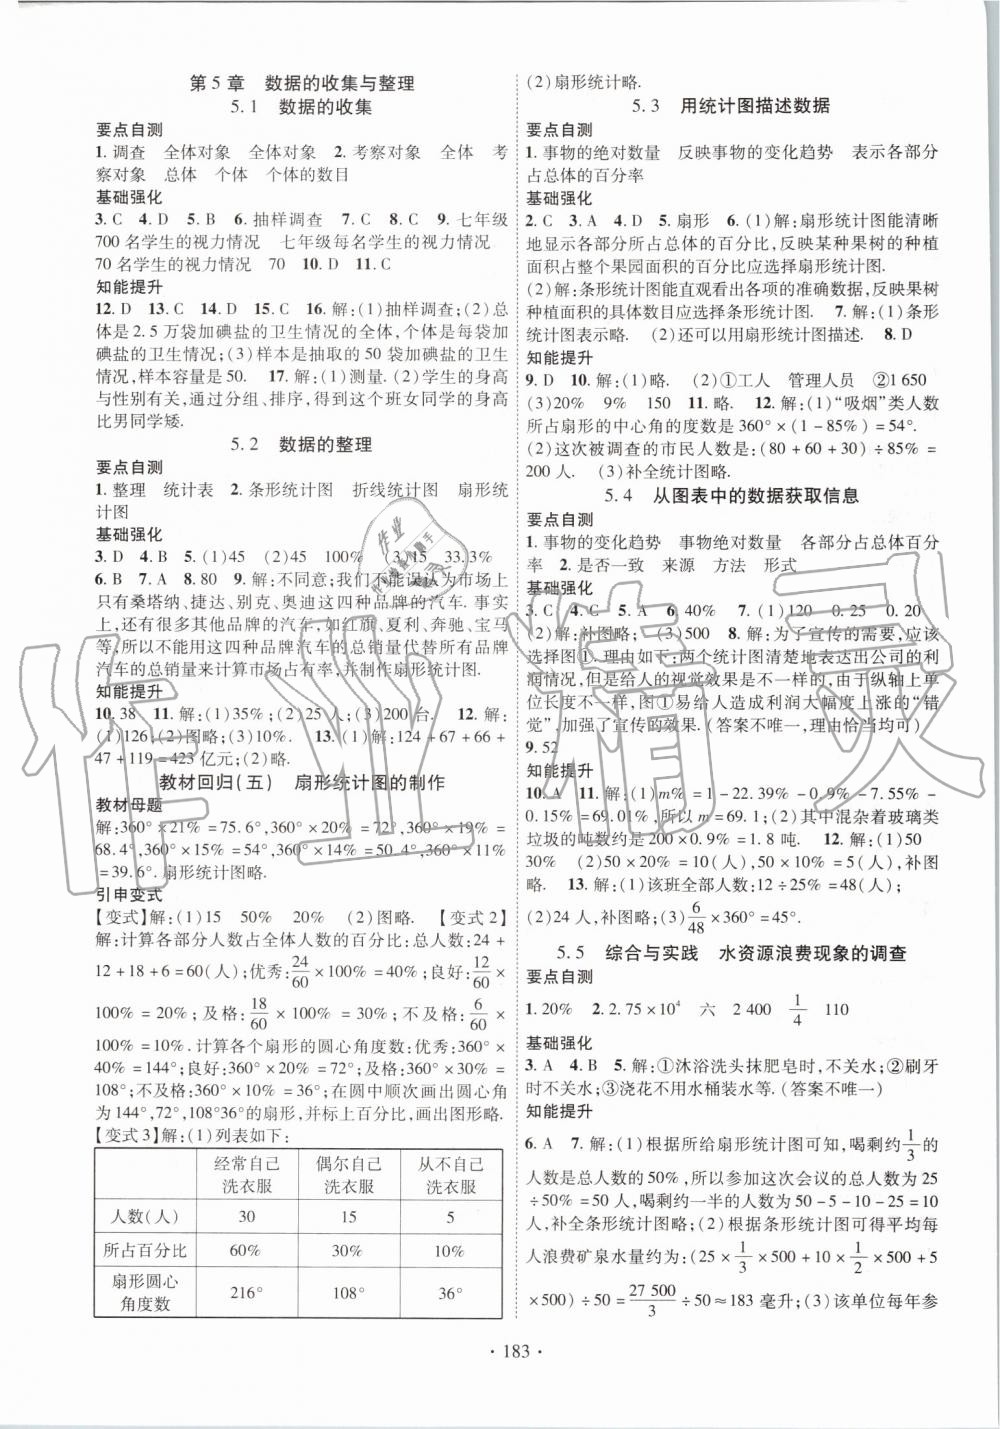 第5章　数据的收集与整理
5.1　数据的收集
要点自测
1. 调查　全体对象　全体对象　2. 考察对象　全体　考
察对象　总体　个体　个体的数目
基础强化
3. C　4. D　5. B　6. 抽样调查　7. C　8. C　9. 七年级
700名学生的视力情况　七年级每名学生的视力情况
70名学生的视力情况　70　10. D　11. C
知能提升
12. D　13. C　14. D　15. C　16. 解:(1)抽样调查;(2)总
体是2.5万袋加碘盐的卫生情况的全体,个体是每袋加
碘盐的卫生情况;(3)样本是抽取的50袋加碘盐的卫生
情况,样本容量是50.　17. 解:(1)测量.(2)学生的身高
与性别有关,通过分组、排序,得到这个班女同学的身高
比男同学矮.
5.2　数据的整理
要点自测
1. 整理　统计表　2. 条形统计图　折线统计图　扇形统
计图
基础强化
3. D　4. B　5. (1)45　(2)45　100%　(3)15　33.3%
6. B　7. A　8. 80　9. 解:不同意;我们不能误认为市场上
只有桑塔纳、捷达、别克、奥迪这四种品牌的汽车.事实
上,还有很多其他品牌的汽车,如红旗、夏利、奔驰、宝马
等,所以不能用这四种品牌汽车的总销量代替所有品牌
汽车的总销量来计算市场占有率,并制作扇形统计图.
知能提升
10. 38　11. 解:(1)35%;(2)25人;(3)200台.　12. 解:
(1)126;(2)图略;(3)10%.　13. (1)解:124+67+66+
47+119=423亿元;(2)略.
教材回归(五)　扇形统计图的制作
教材母题
解:360°×21%=75.6°,360°×20%=72°,360°×19%=
68.4°,360°×15%=54°,360°×14%=50.4°,360°×11%
=39.6°.扇形统计图略.
引申变式
【变式】解:(1)15　50%　20%　(2)图略.　【变式2】
解:计算各部分人数占全体人数的百分比:总人数:24+
12+18+6=60(人);优秀:24/60×100%=40%;良好:12/60×
100%=20%;及格:18/60×100%=30%;不及格:6/60×
100%=10%.计算各个扇形的圆心角度数:优秀:360°×
40%=144°;良好:360°×20%=72°;及格:360°×30%=
108°;不及格:360°×10%=36°;在圆中顺次画出圆心角
为144°,72°,108°36°的扇形,并标上百分比,画出图形略.
【变式3】解:(1)列表如下:
经常自己洗衣服　偶尔自己洗衣服　从不自己洗衣服
人数(人)　30　15　5
所占百分比　60%　30%　10%
扇形圆心角度数　216°　108°　36°
(2)扇形统计略.
5.3　用统计图描述数据
要点自测
1. 事物的绝对数量　反映事物的变化趋势　表示各部分
占总体的百分率
基础强化
2. C　3. A　4. D　5. 扇形　6. (1)解:扇形统计图能清晰
地显示各部分所占总体的百分比,反映某种果树的种植
面积占整个果园面积的百分比应选择扇形统计图.
(2)解:条形统计图能直观看出各项的准确数据,反映果树
种植面积的具体数目应选择条形统计图.　7. 解:(1)条形
统计图表示略.　(2)还可以用扇形统计图描述.　8. D
知能提升
9. D　10. 解:(1)略.　(2)①工人　管理人员　②1 650
(3)20%　9%　150　11. 略.　12. 解:(1)“吸烟”类人数
所占扇形的中心角的度数是360°×(1-85%)=54°.
(2)这次被调查的市民人数是:(80+60+30)÷85%=
200人.　(3)补全统计图略.
5.4　从图表中的数据获取信息
要点自测
1. 事物的变化趋势　事物绝对数量　各部分占总体百分
率　2. 是否一致　来源　方法　形式
基础强化
3. C　4. C　5. A　6. 40%　7. (1)120　0.25　0.20
(2)解:补图略;　(3)500　8. 解:为了宣传的需要,应该
选择图①.理由如下:两个统计图清楚地表达出公司的利
润情况,但是给人的视觉效果是不一样的,由于纵轴上单
位长度不一样,图①易给人造成利润大幅度上涨的“错
觉”,加强了宣传的效果.(答案不唯一,理由恰当均可)
9. 52
知能提升
10. A　11. 解:(1)m%=1-22.39%-0.9%-7.55%-
0.15%=69.01%,所以m=69.1;(2)其中混杂着玻璃类
垃圾的吨数约是200×0.9%=1.8吨.　12. 解:(1)50
30%　(2)50×20%=10(人),50×10%=5(人),补图
略.　13. 解:(1)该班全部人数:12÷25%=48(人);
(2)24人,补图略;(3)6/48×360°=45°.
5.5　综合与实践　水资源浪费现象的调查
要点自测
1. 20%　2. 2.75×10⁴　六　2 400　1/4　110
基础强化
3. A　4. B　5. 解:①沐浴洗头抹肥皂时,不关水;②刷牙
时不关水;③浇花不用水桶装水等.(答案不唯一)
知能提升
6. A　7. 解:(1)根据所给扇形统计图可知,喝剩约1/3的
人数是总人数的50%,所以参加这次会议的总人数为25
÷50%=50人,喝剩约一半的人数为50-5-10-25=10
人,补全条形统计图略;(2)根据条形统计图可得平均每
人浪费矿泉水量约为:(25×1/3×500+10×1/2×500+5
×500)÷50=27 500/3÷50≈183毫升;(3)该单位每年参
· 183 ·
作业精灵